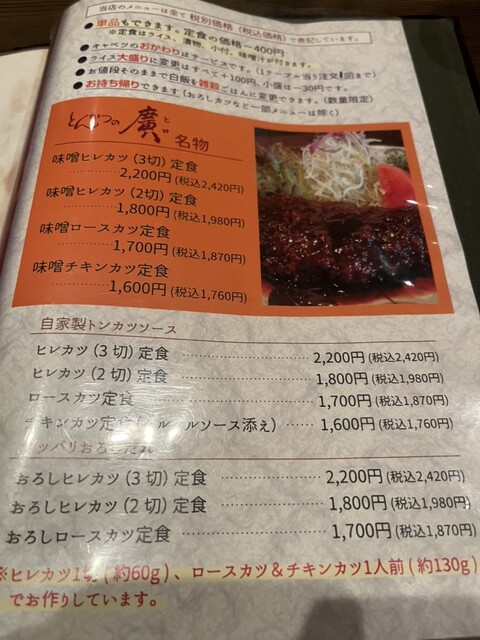 当店のメニューは全て 税別価格（税込価格）で表記しています。
● 単品もできます。定食の価格ー400円
※定食はライス、漬物、小付、味噌汁が付きます。
● キャベツのおかわりはサービスです。(1テーブル当り注文1回まで)
● ライス大盛りに変更はすべて＋100円、小盛は－30円です。
● お値段そのままで白飯を雑穀ごはんに変更できます。(数量限定)
● お持ち帰りできます（おろしカツなど一部メニューは除く）
とんかつの 廣 ヒロ 名物
味噌ヒレカツ（3切）定食
2,200円 (税込2,420円)
味噌ヒレカツ（2切）定食
1,800円 (税込1,980円)
味噌ロースカツ定食
1,700円 (税込1,870円)
味噌チキンカツ定食
1,600円 (税込1,760円)
自家製トンカツソース
ヒレカツ（3 切）定食 2,200円 (税込2,420円)
ヒレカツ（2 切）定食 1,800円 (税込1,980円)
ロースカツ定食 1,700円 (税込1,870円)
チキンカツ定食 ルソース添え） 1,600円 (税込1,760円)
ッパリおろし
おろしヒレカツ（3 切）定食 2,200円 (税込2,420円)
おろしヒレカツ（2 切）定食 1,800円 (税込1,980円)
おろしロースカツ定食 1,700円 (税込1,870円)
※ヒレカツ1切 ( 約60g )、ロースカツ＆チキンカツ1人前 ( 約130g )
でお作りしています。